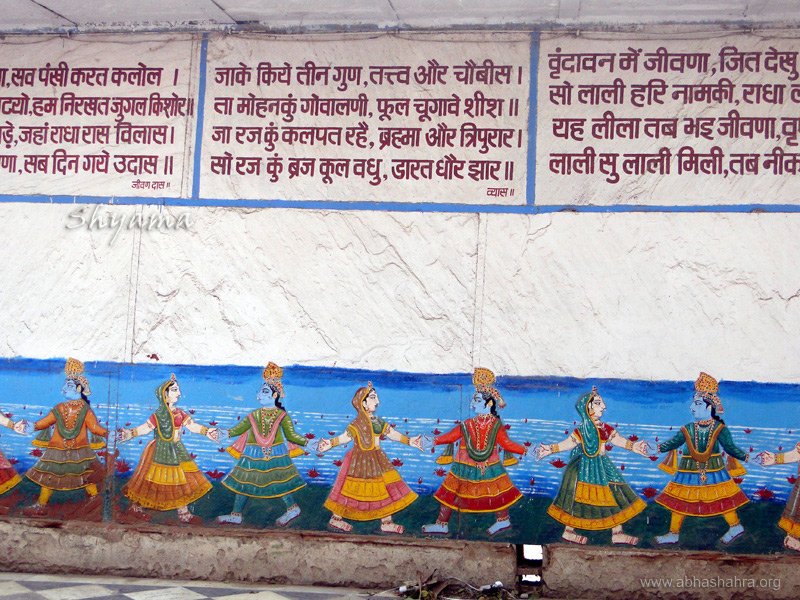 ा, सव पंखी करत कलोल ।
ाट्यो, हम निरखत जुगल किशोर॥
ड़े, जहां राधा रास विलास।
णा, सब दिन गये उदास॥
जीवण दास॥
जाके किये तीन गुण, तत्त्व और चौबीस।
ता मोहनकुं गोवालणी, फूल चूगावे शीश॥
जा रज कुं कलपत रहै, ब्रह्मा और त्रिपुरार।
सो रज कुं ब्रज कूल वधु, भारत धौर झार॥
व्यास॥
वृंदावन में जीवणा, जित देखु
सो लाली हरि नामकी, राधा ल
यह लीला तब भइ जीवणा, वृ
लाली सु लाली मिली, तब नीक
Shyama
www.abhashahra.org